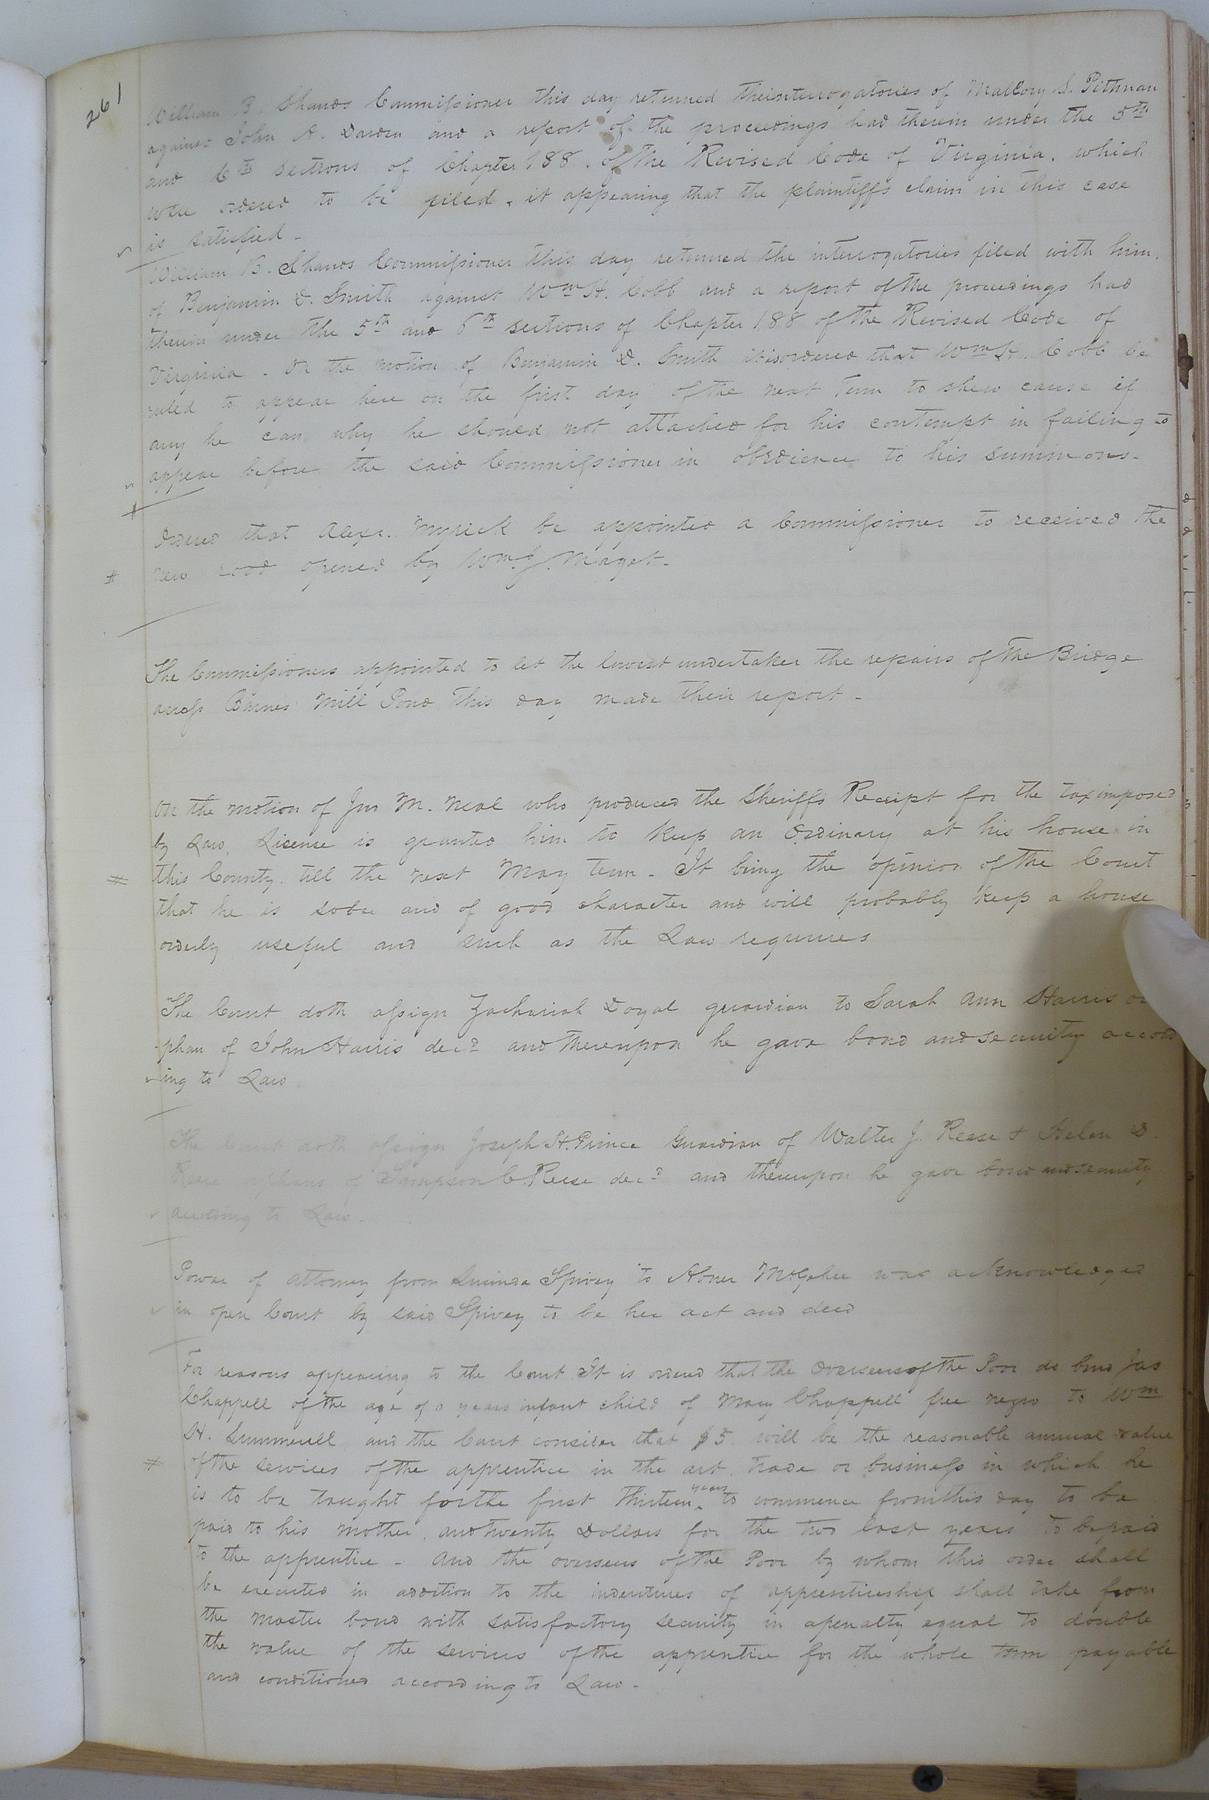 261
William B. Shands Commissioner this day returned the interrogatories of Mallory S. Pittman
against John A. Darden and a report of the proceedings had therein under the 5th
and 6th sections of Chapter 188. of the Revised Code of Virginia. which
were ordered to be filed. it appearing that the plaintiffs claim in this case
is satisfied -
William B. Shands Commissioner this day returned the interrogatories filed with him.
of Benjamin D. Smith against Wm H. Cobb and a report of the proceedings had
therein under the 5th and 6th sections of Chapter 188 of the Revised Code of
Virginia. On the motion of Benjamin D. Smith it is ordered that Wm H. Cobb be
ruled to appear here on the first day of the next Term to shew cause if
any he can why he should not attached for his contempt in failing to
appear before the said Commissioner in obedience to his summons -
Ordered that Alexr. Myrick be appointed a Commissioner to received the
# new road opened by Wm J. Maget -
The Commissioners appointed to let the lowest undertaker the repairs of the Bridge
across Barnes Mill Pond this day made their report -
On the motion of Jno M. Neal who produced the Sheriffs Receipt for the tax imposed
by Law, License is granted him to keep an Ordinary at his house in
# this County till the next May term - It being the opinion of the Court
that he is sober and of good character and will probably keep a house
orderly useful and such as the Law requires
The Court doth assign Zachariah Doyal guardian to Sarah Ann Harris or
phan of John Harris decd and thereupon he gave bond and security accord
ing to Law.
The Court doth assign Joseph H. Prince Guardian of Walter J. Reese & Helen D.
Reese orphans of Sampson C. Reese decd and thereupon he gave bond and security
according to Law.
Power of attorney from Lucinda Spivey to Abner McGehee was acknowledged
in open Court by said Spivey to be her act and deed
For reasons appearing to the Court It is ordered that the Overseers of the Poor do bind Jas
Chappell of the age of years infant child of Mary Chappell free negro to Wm
H. Summerell and the Court consider that $5 will be the reasonable annual value
# of the services of the apprentice in the art trade or business in which he
is to be taught for the first thirteen years to commence from this day to be
paid to his mother, and twenty Dollars for the two last years to be paid
to the apprentice - and the overseers of the Poor by whom this order shall
be executed in addition to the indentures of apprenticeship shall take from
the master bond with satisfactory security in a penalty equal to double
the value of the services of the apprentice for the whole term payable
and conditioned according to Law -